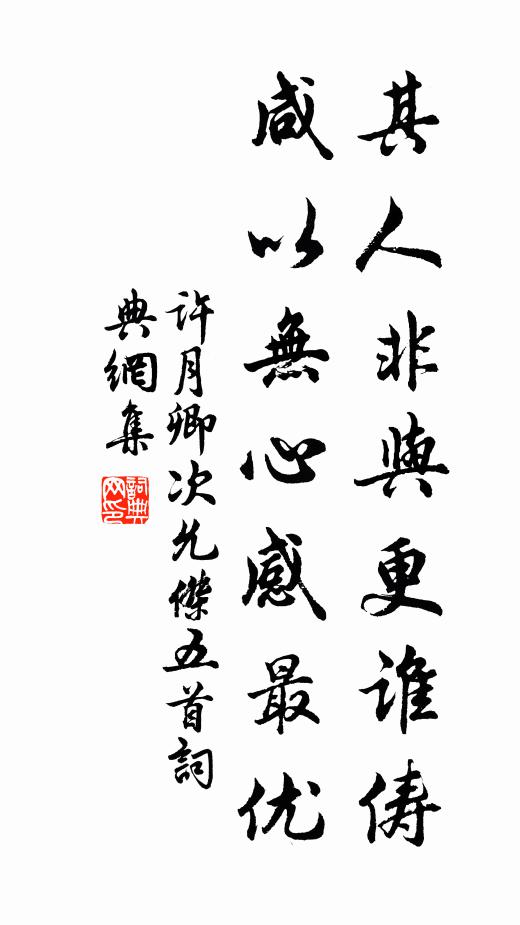 其人非與更誰俦
咸以無心感最优
許月卿次允傑五首詞
典網集
詞典网印